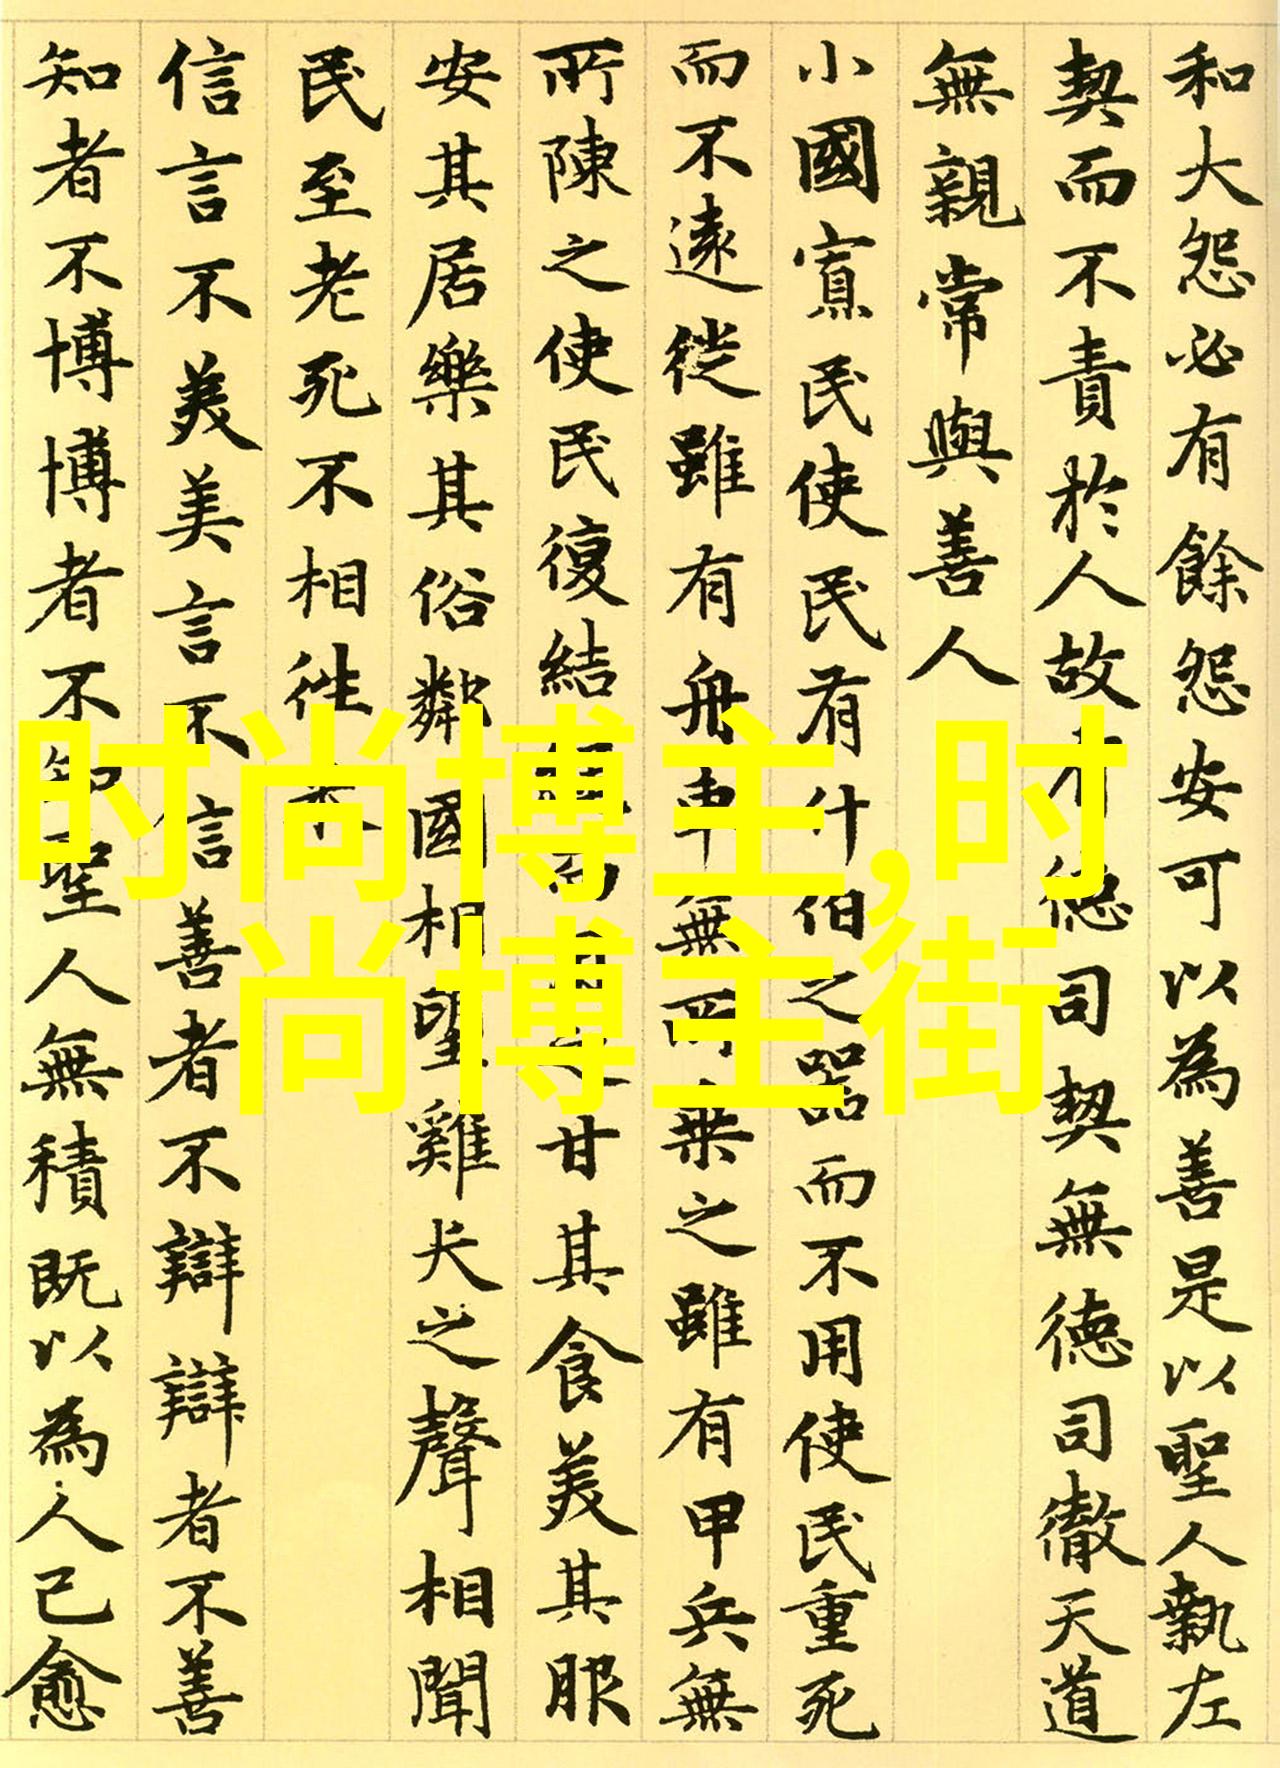 和大怨必有餘怨安可以為善是以聖人執左
契而不責於人故有德司契無德司徹天道
無親常與善人
小國寡民使民有什伯之器而不用使民重死
而不遠徙雖有舟車無所乗之雖有甲兵無
所陳之使民復結繩而用之甘其食美其服
安其居樂其俗鄰國相望雞犬之聲相聞
民至老死不相往来
信言不美美言不信善者不辯辯者不善
知者不博博者不知聖人無積既以為人己愈
时尚博主,时
尚博主街